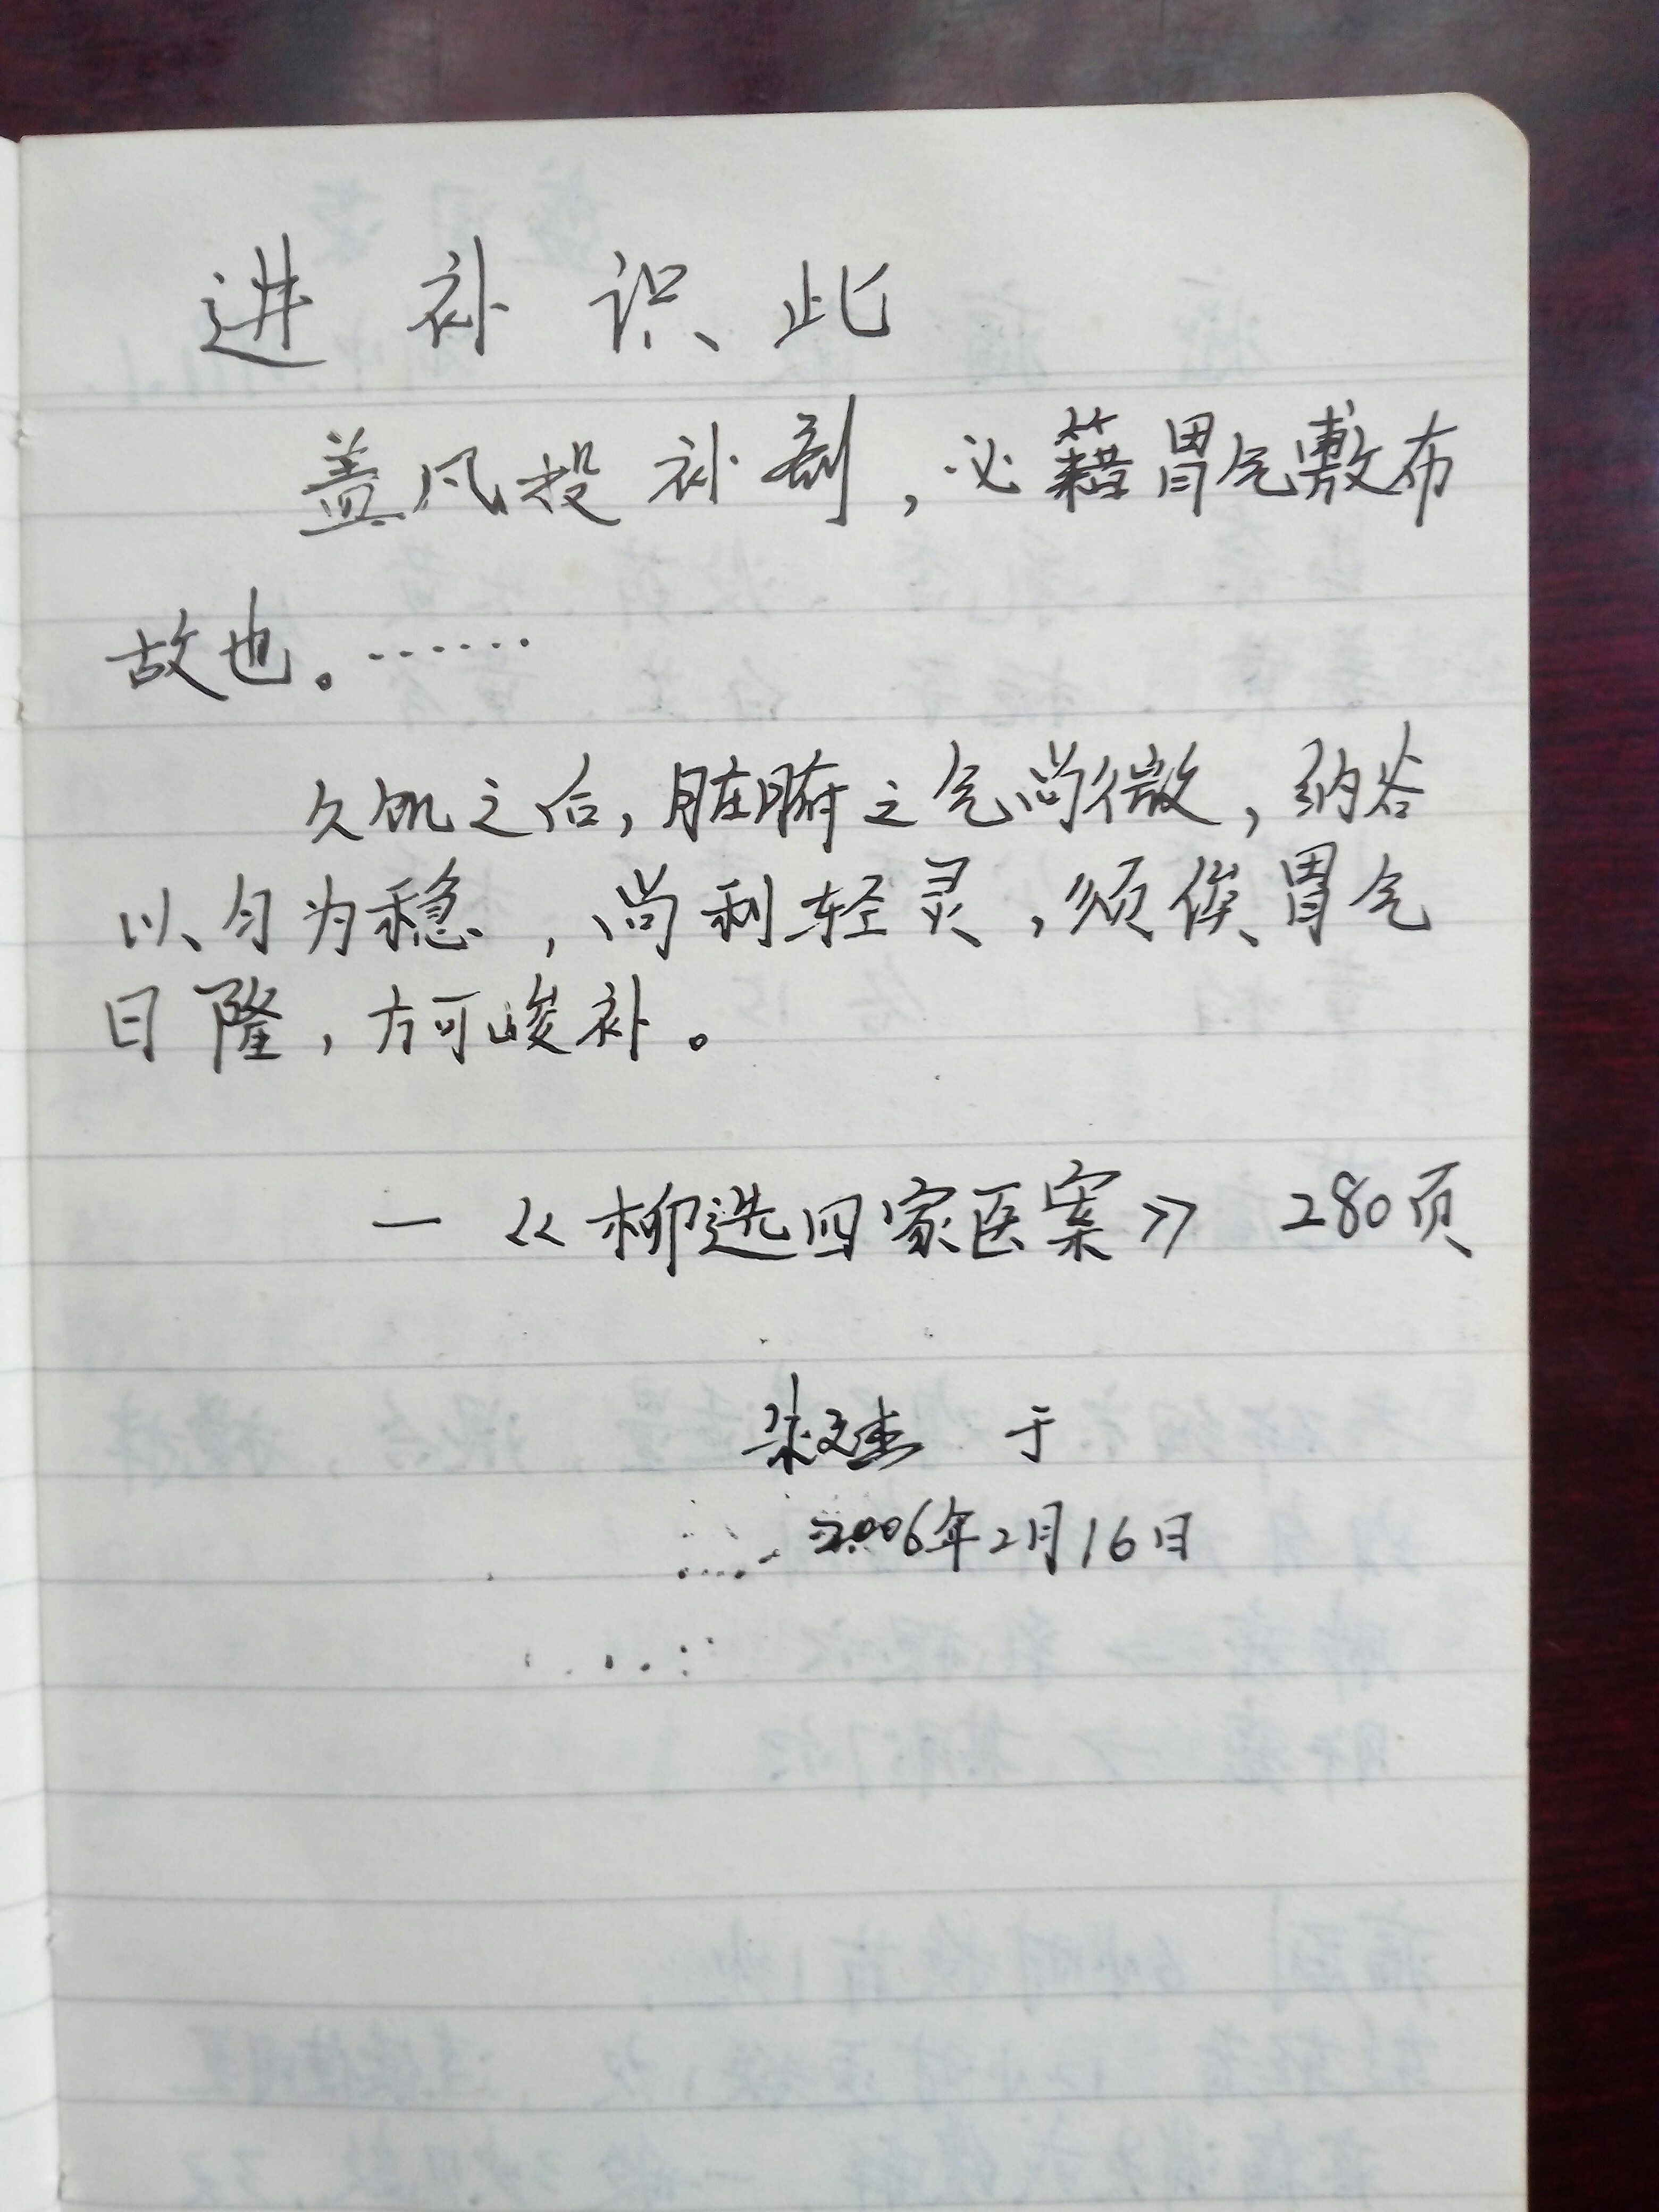 进补识此
盖凡投补剂，必籍胃气敷布
故也。……
久饥之后，脏腑之气尚微，纳谷
以匀为稳，尚利轻灵，须俟胃气
日隆，方可峻补。
—《柳选四家医案》 280页
于
2006年2月16日